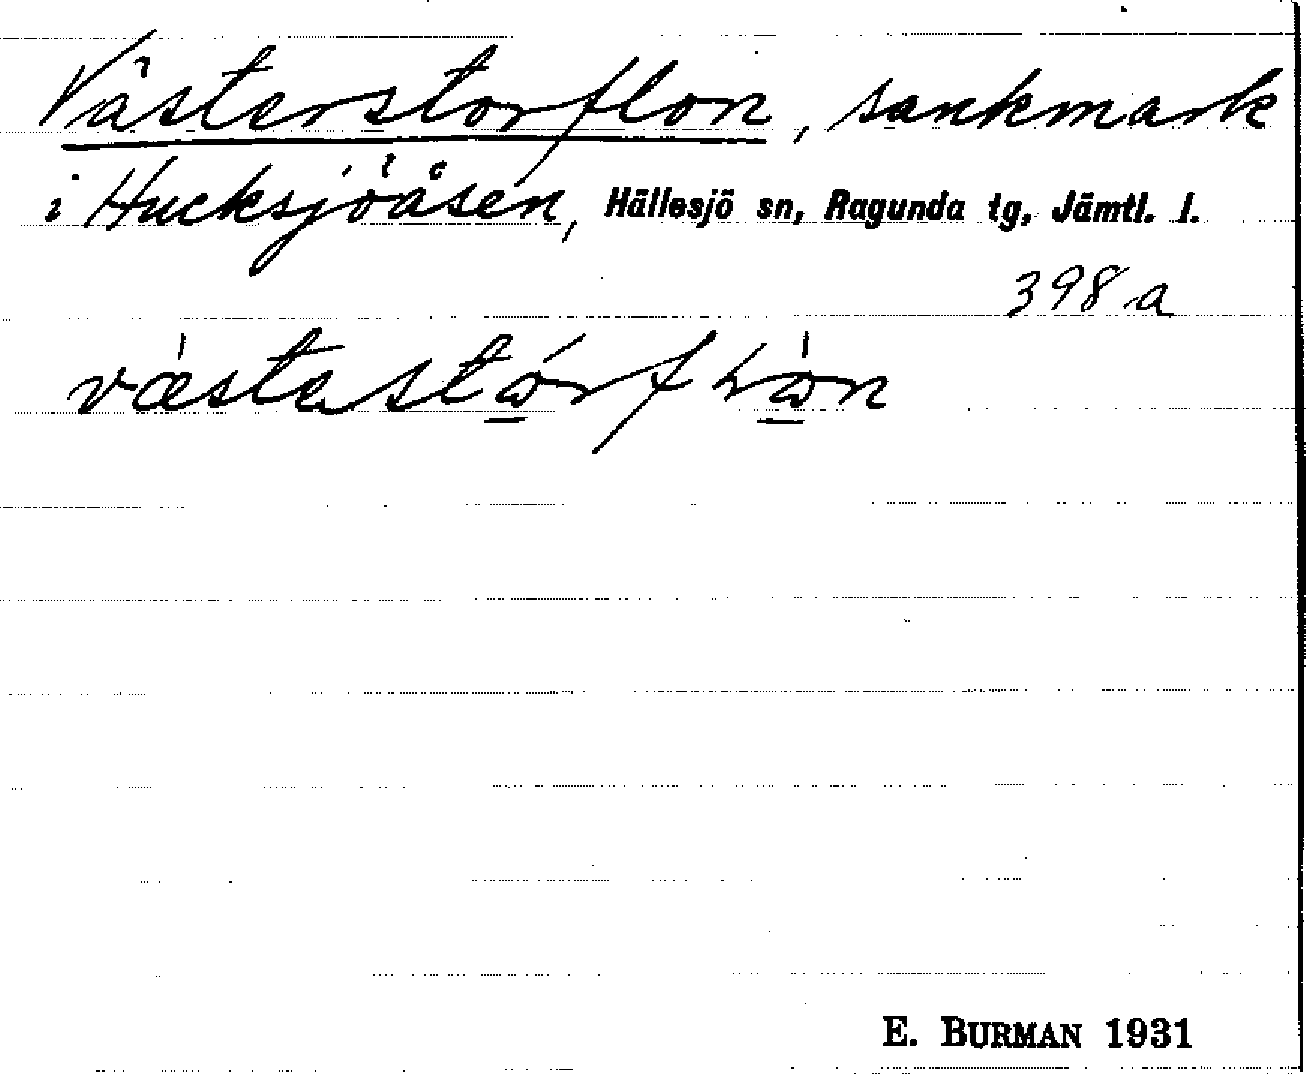 Västerstorflon, sankmark
i Hucksjöåsen, Hällesjö sn, Ragunda tg, Jämtl. l.
398 a
E. BURMAN 1931